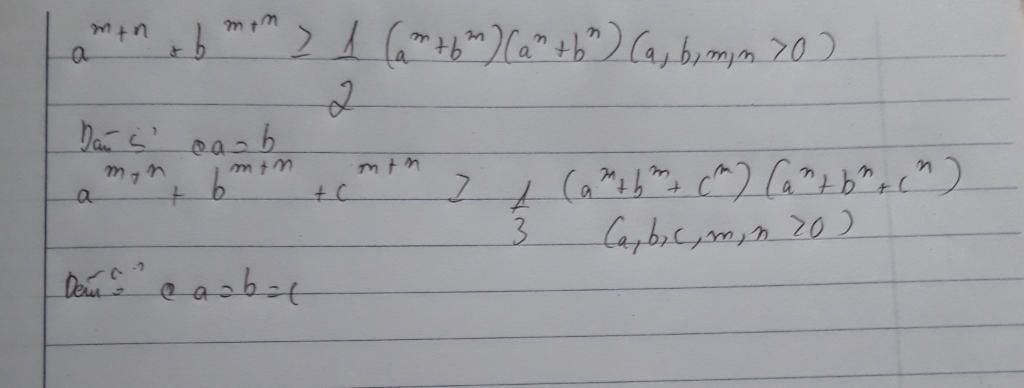 a^{m+n} + b^{m+n} ≥ 1/2 (a^m + b^m)(a^n + b^n) (a, b, m, n > 0)
Dấu "=" @ a = b
a^{m+n} + b^{m+n} + c^{m+n} ≥ 1/3 (a^m + b^m + c^m)(a^n + b^n + c^n)
(a, b, c, m, n > 0)
Dấu "=" @ a = b = c